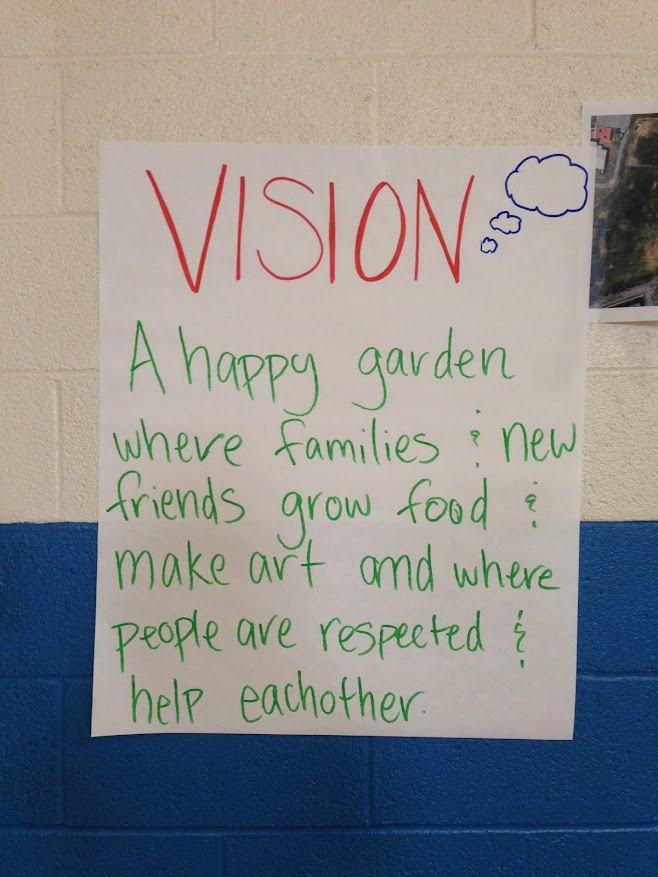 VISION
A happy garden
where families & new
friends grow food &
make art and where
people are respected &
help eachother.